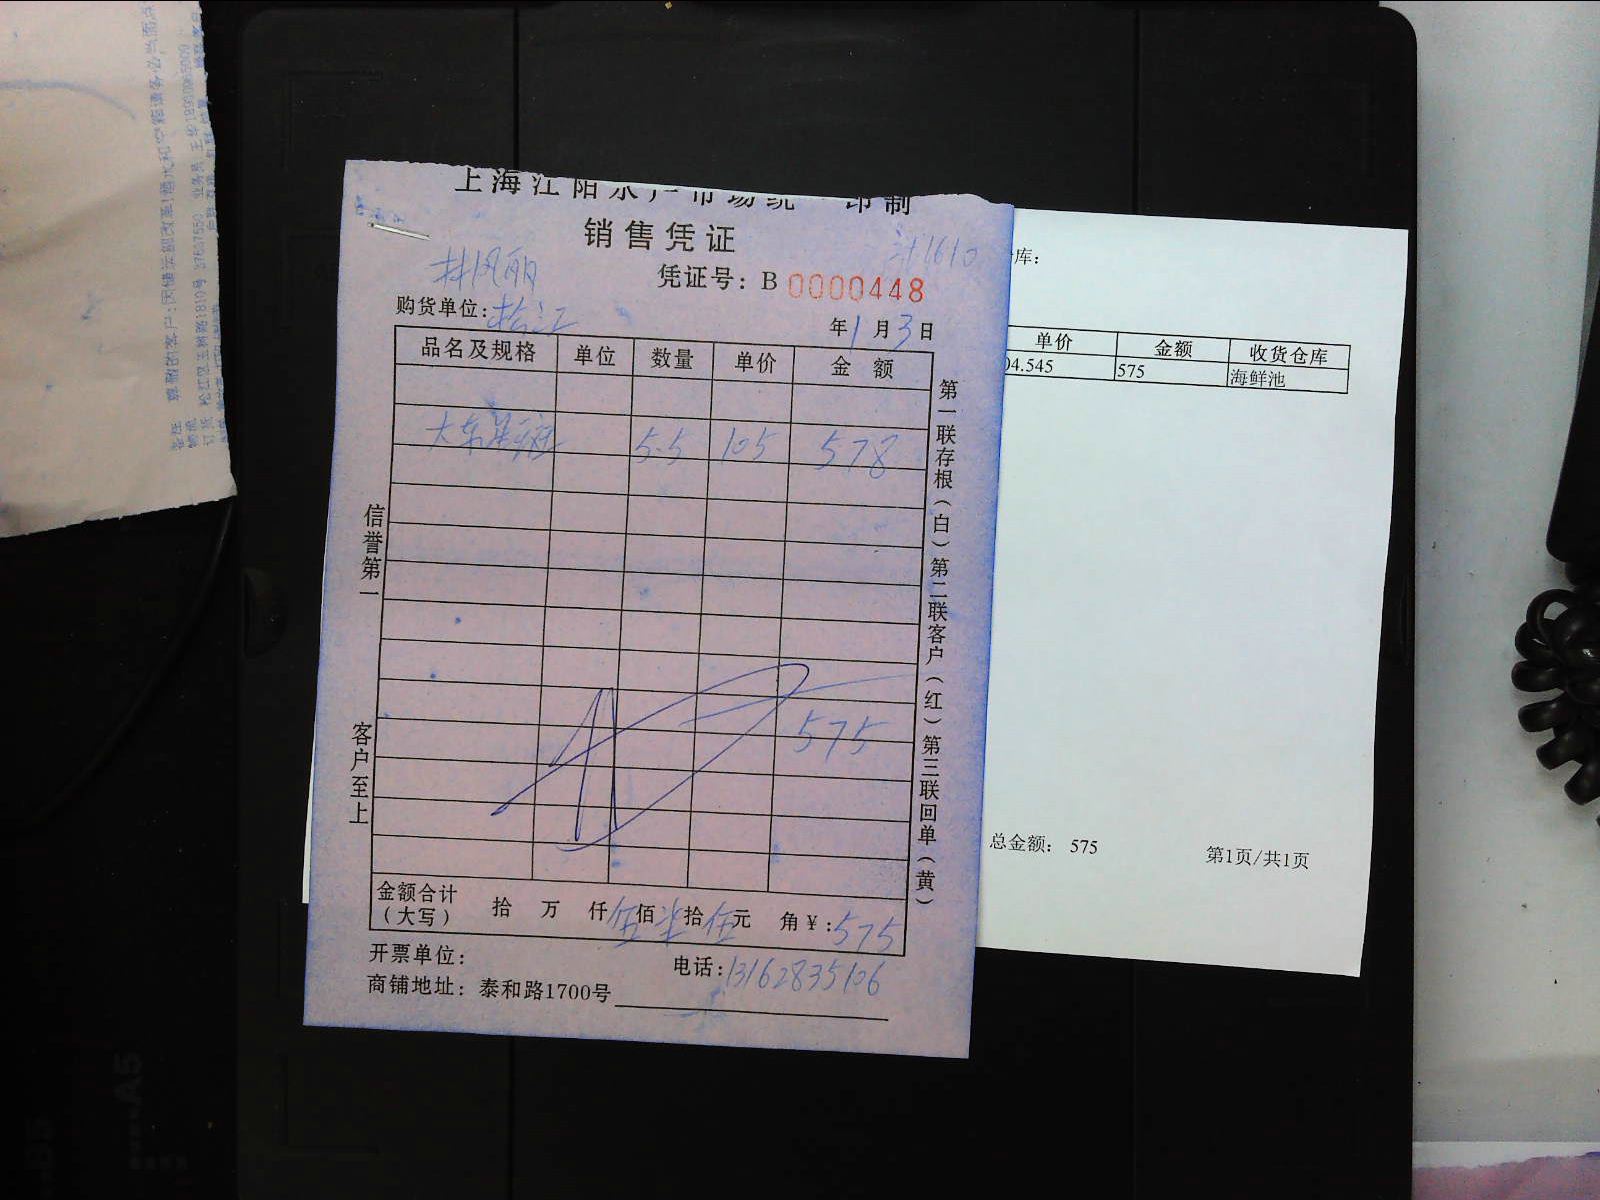 上海江阳水产市场统一印制
销售凭证
计1610
林凤丽
凭证号：B 0000448
购货单位：松江
年1月3日
品名及规格 单位 数量 单价 金额
大东星斑 5.5 105 578
575
金额合计（大写） 拾 万 仟 伍佰 柒拾 伍元 角 ¥：575
开票单位：
电话：13162835106
商铺地址：泰和路1700号
信誉第一
客户至上
第一联存根（白）第二联客户（红）第三联回单（黄）
库：
单价 金额 收货仓库
04.545 575 海鲜池
总金额： 575 第1页/共1页
A5